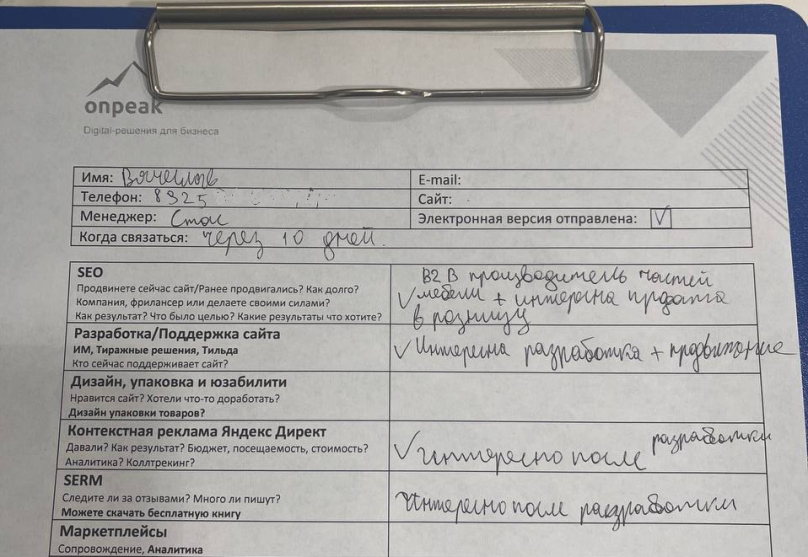 onpeak
Digital-решения для бизнеса
Имя: Вячеслав
E-mail:
Телефон: 8925
Сайт:
Менеджер: Стас
Электронная версия отправлена: ✓
Когда связаться: через 10 дней.
SEO
Продвинете сейчас сайт/Ранее продвигались? Как долго?
Компания, фрилансер или делаете своими силами?
Как результат? Что было целью? Какие результаты что хотите?
B2B производитель частей
✓ мебели + интересна продажа
в розницу
Разработка/Поддержка сайта
ИМ, Тиражные решения, Тильда
Кто сейчас поддерживает сайт?
✓ Интересна разработка + продвижение
Дизайн, упаковка и юзабилити
Нравится сайт? Хотели что-то доработать?
Дизайн упаковки товаров?
Контекстная реклама Яндекс Директ
Давали? Как результат? Бюджет, посещаемость, стоимость?
Аналитика? Коллтрекинг?
✓ Интересно после разработки
SERM
Следите ли за отзывами? Много ли пишут?
Можете скачать бесплатную книгу
Интересно после разработки
Маркетплейсы
Сопровождение, Аналитика